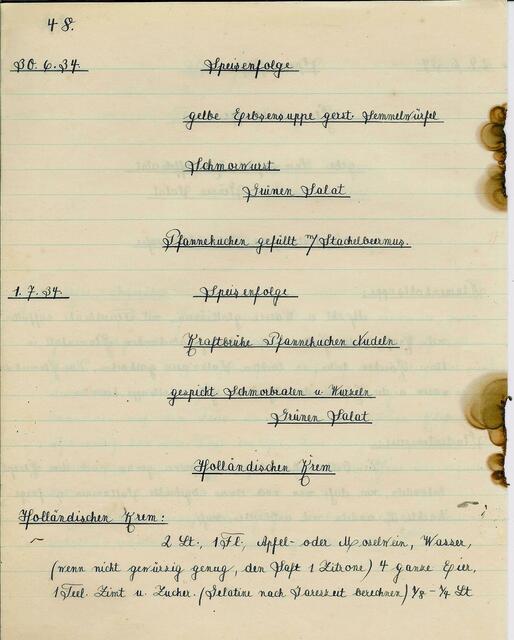 48.
30.6.34. Speisenfolge
gelbe Erbsensuppe gerst. Semmelwürfel
Schmorwurst
Grünen Salat
Pfannekuchen gefüllt m/ Stachelbeermus.
1.7.34. Speisenfolge
Kraftbrühe Pfannekuchen Nudeln
gespickt Schmorbraten u Wurzeln
Grünen Salat
Holländischen Krem
Holländischen Krem:
2 Lt., 1 Fl., Apfel- oder Moselwein, Wasser,
(wenn nicht gewürzig genug, den Saft 1 Zitrone) 4 ganze Eier,
1 Teel. Zimt u. Zucker. (Gelatine nach Jareszeit berechnen) ⅛ - ¼ Lt